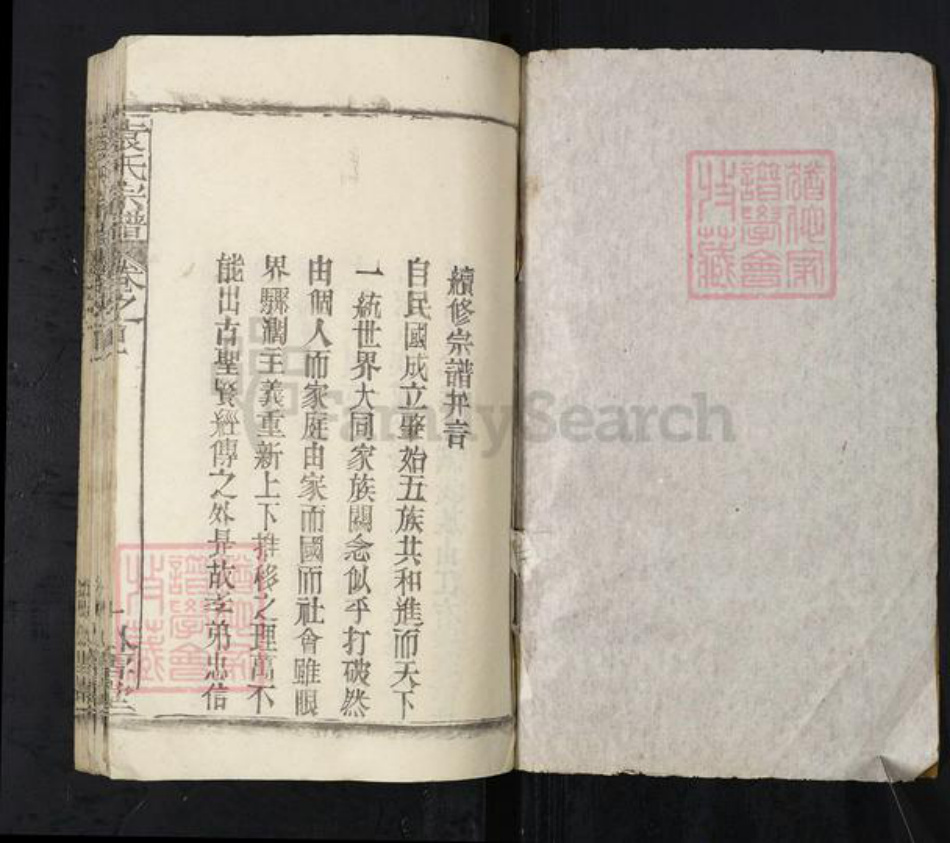 續修宗譜弁言
自民國成立肇始五族共和進而天下
一統世界大同家族關念似乎打破然
由個人而家庭由家而國而社會雖眼
界驟濶主義重新上下推移之理萬不
能出古聖賢經傳之外是故孝弟忠信
袁氏宗譜
卷之首
FamilySearch
譜學會
收藏
譜學會
收藏